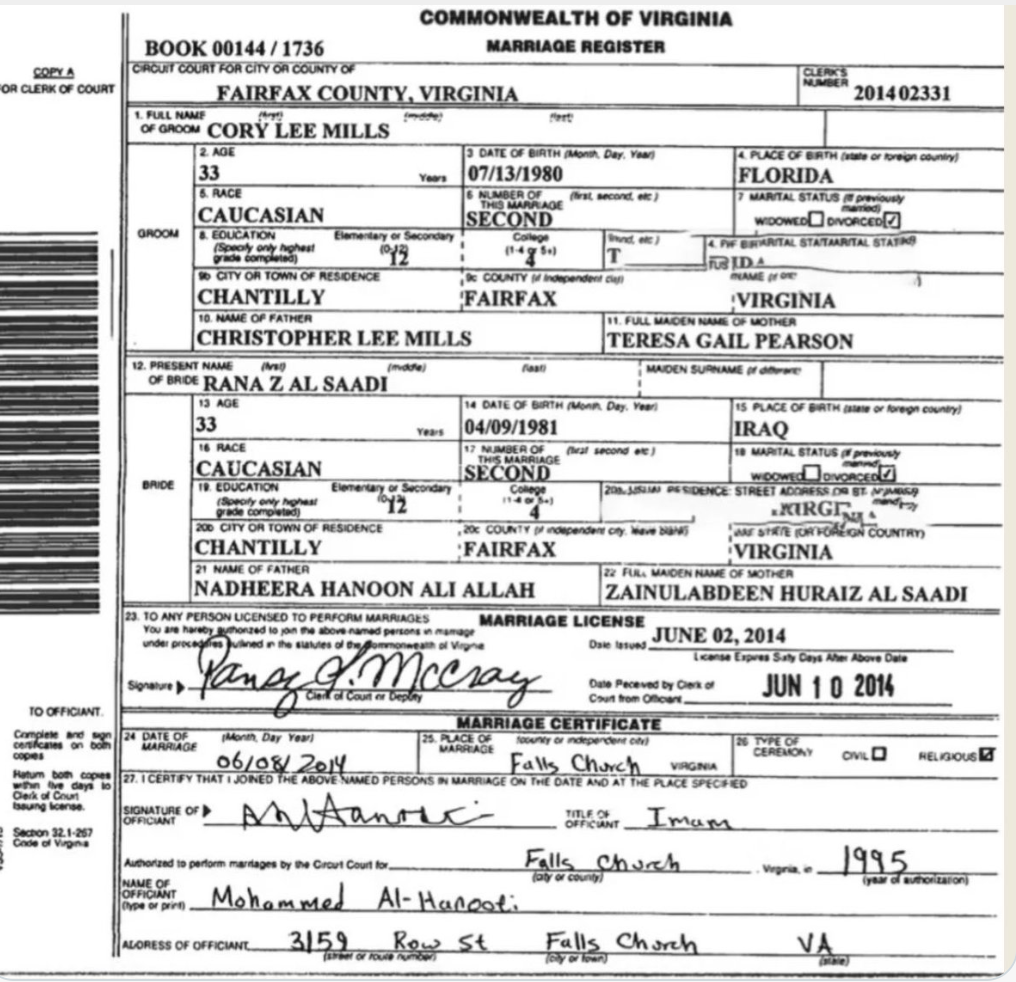 COMMONWEALTH OF VIRGINIA
BOOK 00144 / 1736 MARRIAGE REGISTER
COPY A
FOR CLERK OF COURT
CIRCUIT COURT FOR CITY OR COUNTY OF
FAIRFAX COUNTY, VIRGINIA
CLERK'S
NUMBER 201402331
1. FULL NAME (first) (middle) (last)
OF GROOM CORY LEE MILLS
GROOM
2. AGE 3 DATE OF BIRTH (Month, Day, Year) 4. PLACE OF BIRTH (state or foreign country)
33 Years 07/13/1980 FLORIDA
5. RACE 6 NUMBER OF (first, second, etc) 7 MARITAL STATUS (If previously
THIS MARRIAGE married)
CAUCASIAN SECOND WIDOWED DIVORCED ✓
8. EDUCATION Elementary or Secondary College
(Specify only highest (0-12) (1-4 or 5+)
grade completed) 12 4
9b CITY OR TOWN OF RESIDENCE 9c COUNTY (if independent city)
CHANTILLY FAIRFAX VIRGINIA
10. NAME OF FATHER 11. FULL MAIDEN NAME OF MOTHER
CHRISTOPHER LEE MILLS TERESA GAIL PEARSON
12. PRESENT NAME (first) (middle) (last) MAIDEN SURNAME (if different)
OF BRIDE RANA Z AL SAADI
BRIDE
13 AGE 14 DATE OF BIRTH (Month, Day, Year) 15 PLACE OF BIRTH (state or foreign country)
33 Years 04/09/1981 IRAQ
16 RACE 17 NUMBER OF (first second etc) 18 MARITAL STATUS (If previously
THIS MARRIAGE married)
CAUCASIAN SECOND WIDOWED DIVORCED ✓
19. EDUCATION Elementary or Secondary College 20a. USUAL RESIDENCE: STREET ADDRESS OR ST. NUMBER
(Specify only highest (0-12) (1-4 or 5+)
grade completed) 12 4
20b CITY OR TOWN OF RESIDENCE 20c COUNTY (if independent city, leave blank) STATE (OR FOREIGN COUNTRY)
CHANTILLY FAIRFAX VIRGINIA
21 NAME OF FATHER 22 FULL MAIDEN NAME OF MOTHER
NADHEERA HANOON ALI ALLAH ZAINULABDEEN HURAIZ AL SAADI
23. TO ANY PERSON LICENSED TO PERFORM MARRIAGES MARRIAGE LICENSE
You are hereby authorized to join the above-named persons in marriage
under procedures outlined in the statutes of the Commonwealth of Virginia
Date Issued JUNE 02, 2014
License Expires Sixty Days After Above Date
Signature McCray
Clerk of Court or Deputy
Date Received by Clerk of
Court from Officiant JUN 10 2014
TO OFFICIANT.
Complete and sign
certificates on both
copies
Return both copies
within five days to
Clerk of Court
issuing license.
Section 32.1-267
Code of Virginia
MARRIAGE CERTIFICATE
24 DATE OF (Month, Day Year) 25. PLACE OF (county or independent city) 26 TYPE OF
MARRIAGE MARRIAGE CEREMONY CIVIL RELIGIOUS ✓
06/08/2014 Falls Church VIRGINIA
27. I CERTIFY THAT I JOINED THE ABOVE-NAMED PERSONS IN MARRIAGE ON THE DATE AND AT THE PLACE SPECIFIED
SIGNATURE OF
OFFICIANT
TITLE OF
OFFICIANT Imam
Authorized to perform marriages by the Circuit Court for Falls Church, Virginia, in 1995
(city or county) (year of authorization)
NAME OF
OFFICIANT
(type or print) Mohammed Al-Hanooti
ADDRESS OF OFFICIANT 3159 Row St Falls Church VA
(street or route number) (city or town) (state)